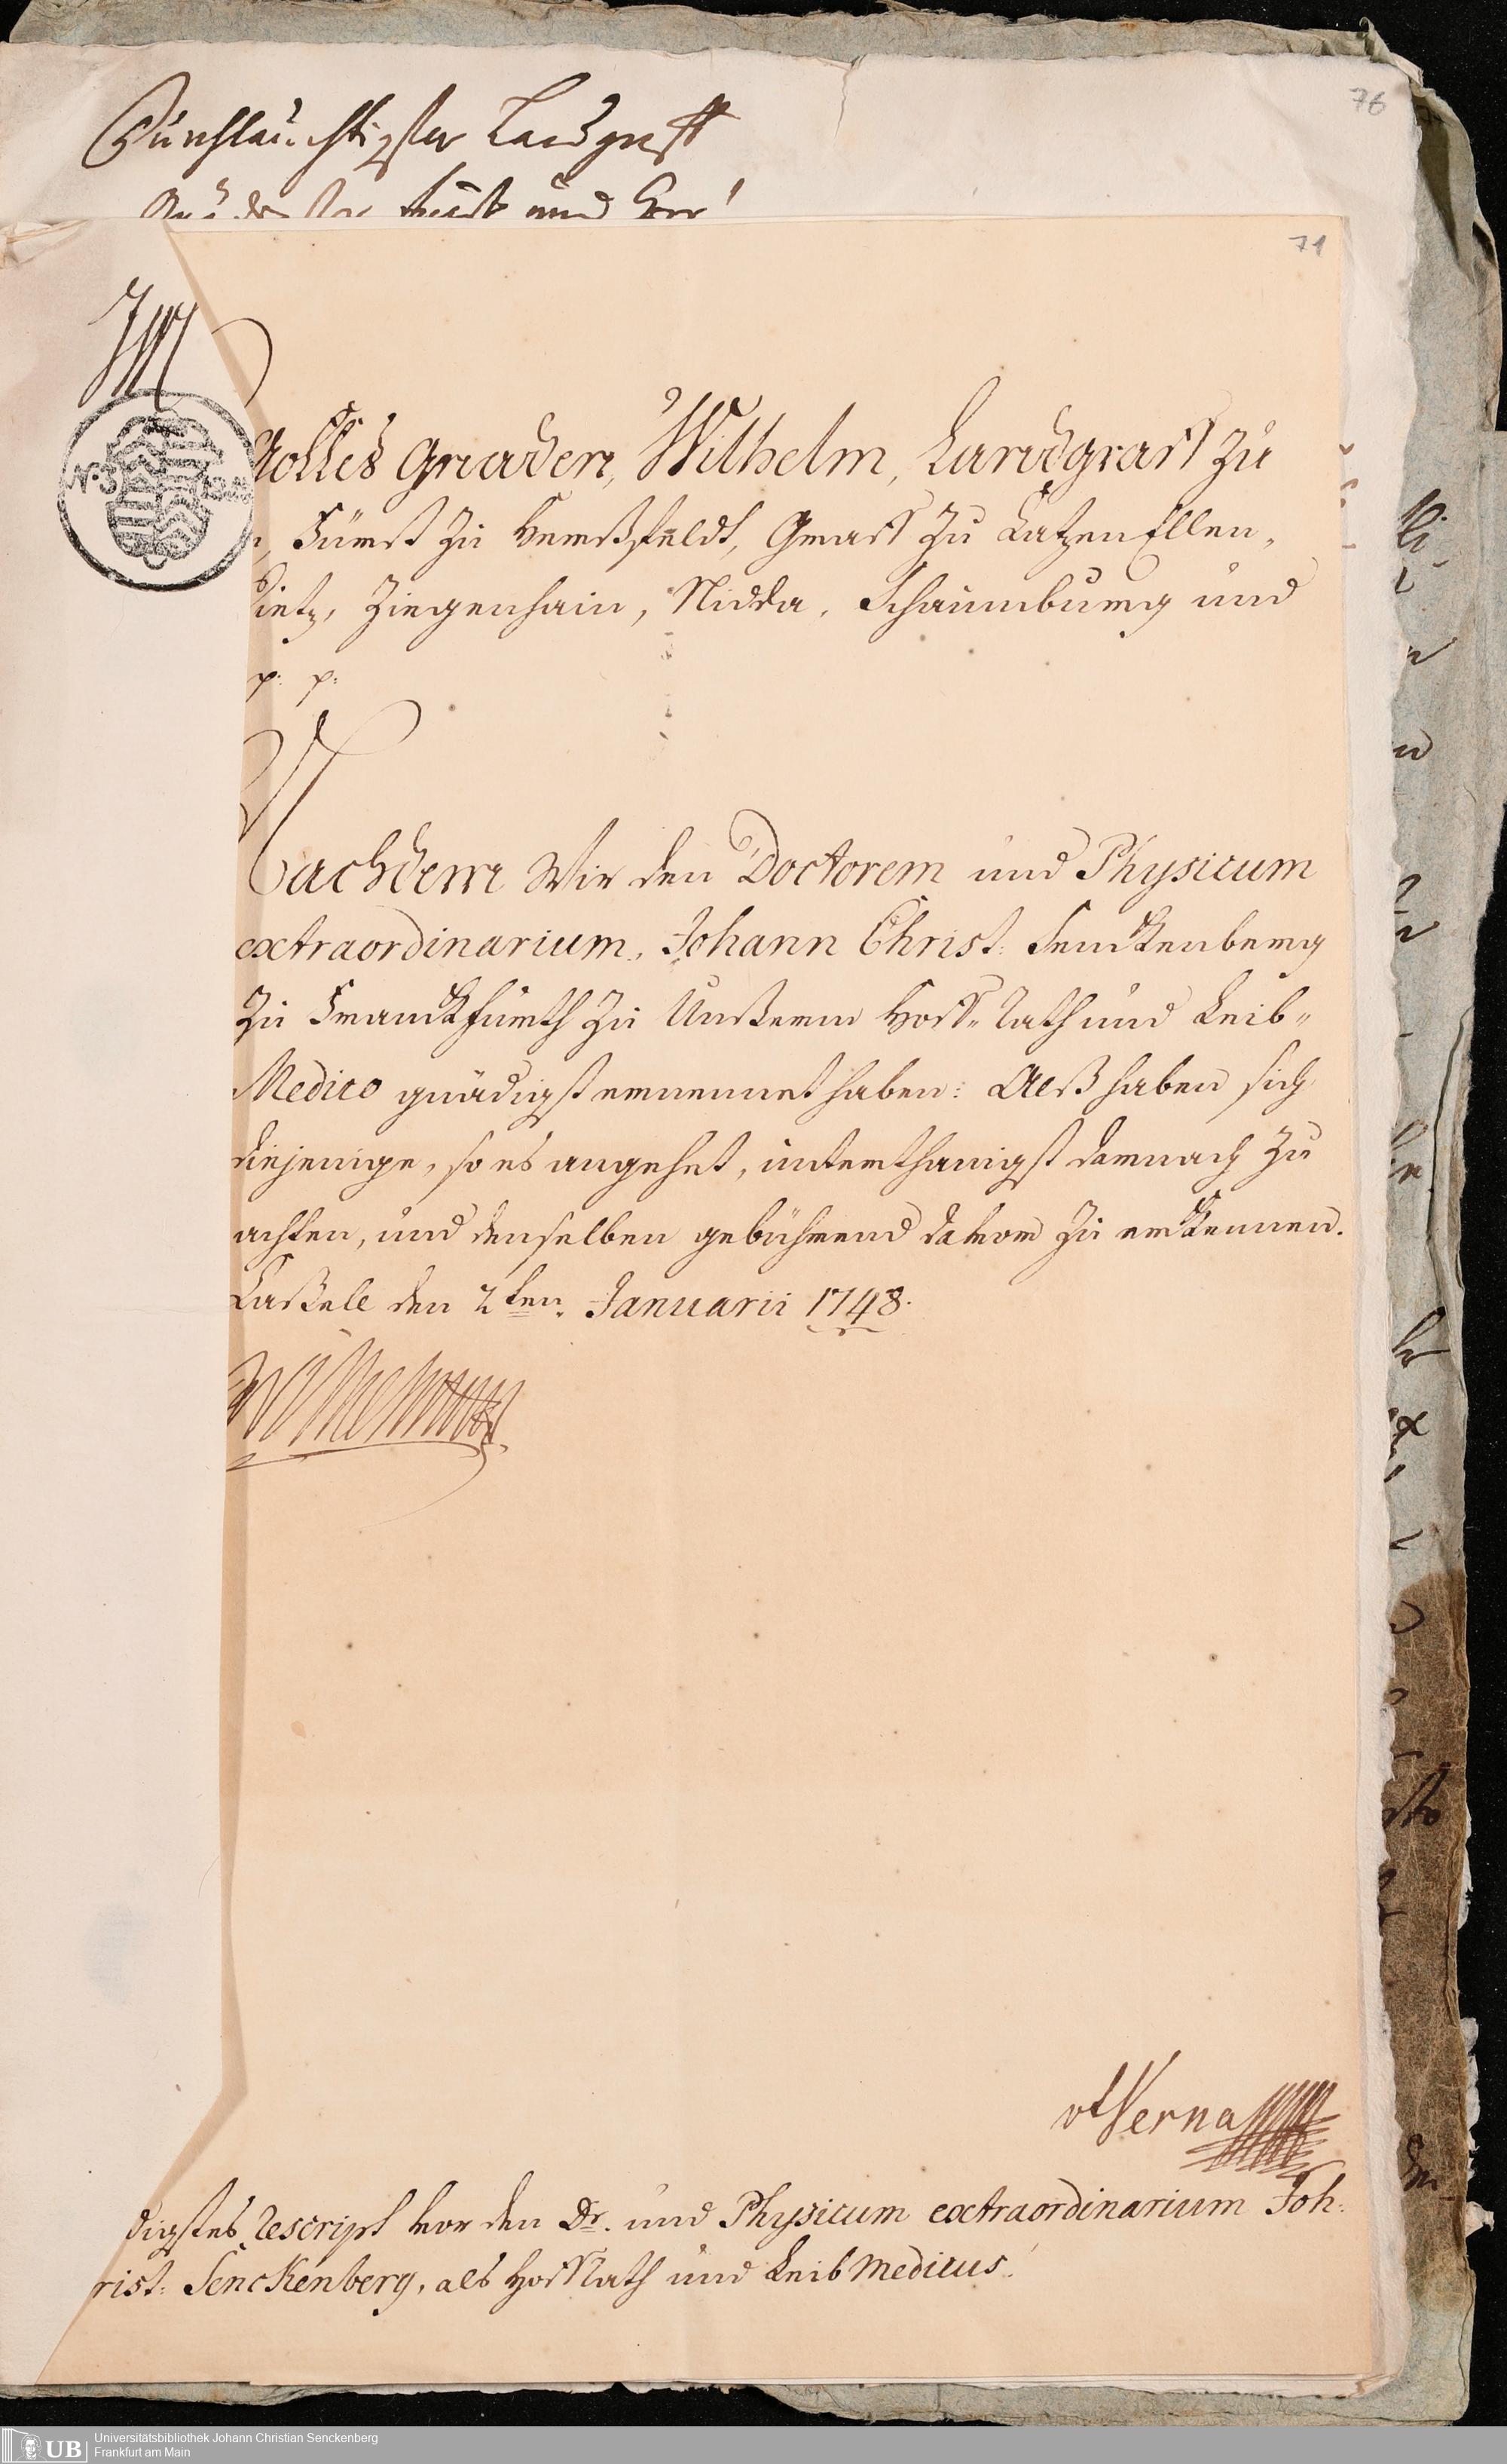 76
Durchlauchtigster Landgraff
Fürst und Herr!
71
Gottes Gnaden, Wilhelm, Landgraff zu
Fürst zu Herßfeldt, Graff zu CatzenEllen„
Dietz, Ziegenhain, Nidda, Schaumburg und
p. p.
Nachdem Wir den Doctorem und Physicum
extraordinarium, Johann Christ: Senckenberg
zu Franckfurth zu Unßerm Hoff-Rath und Leib-
Medico gnädigst ernennet haben: Alß haben sich
diejenige, so es angehet, unterthanigst darnach zu
achten, und denselben gebührend davor zu erkennen.
Caßell den 2ten Januarii 1748.
Wilhelm
vt Verna
digstes Rescript vor den Dr. und Physicum extraordinarium Joh:
rist: Senckenberg, als Hoff Rath und Leib Medicus.
UB
Universitätsbibliothek Johann Christian Senckenberg
Frankfurt am Main